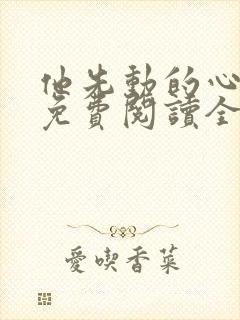 他先動的心
免費閱讀全
愛喫香菜